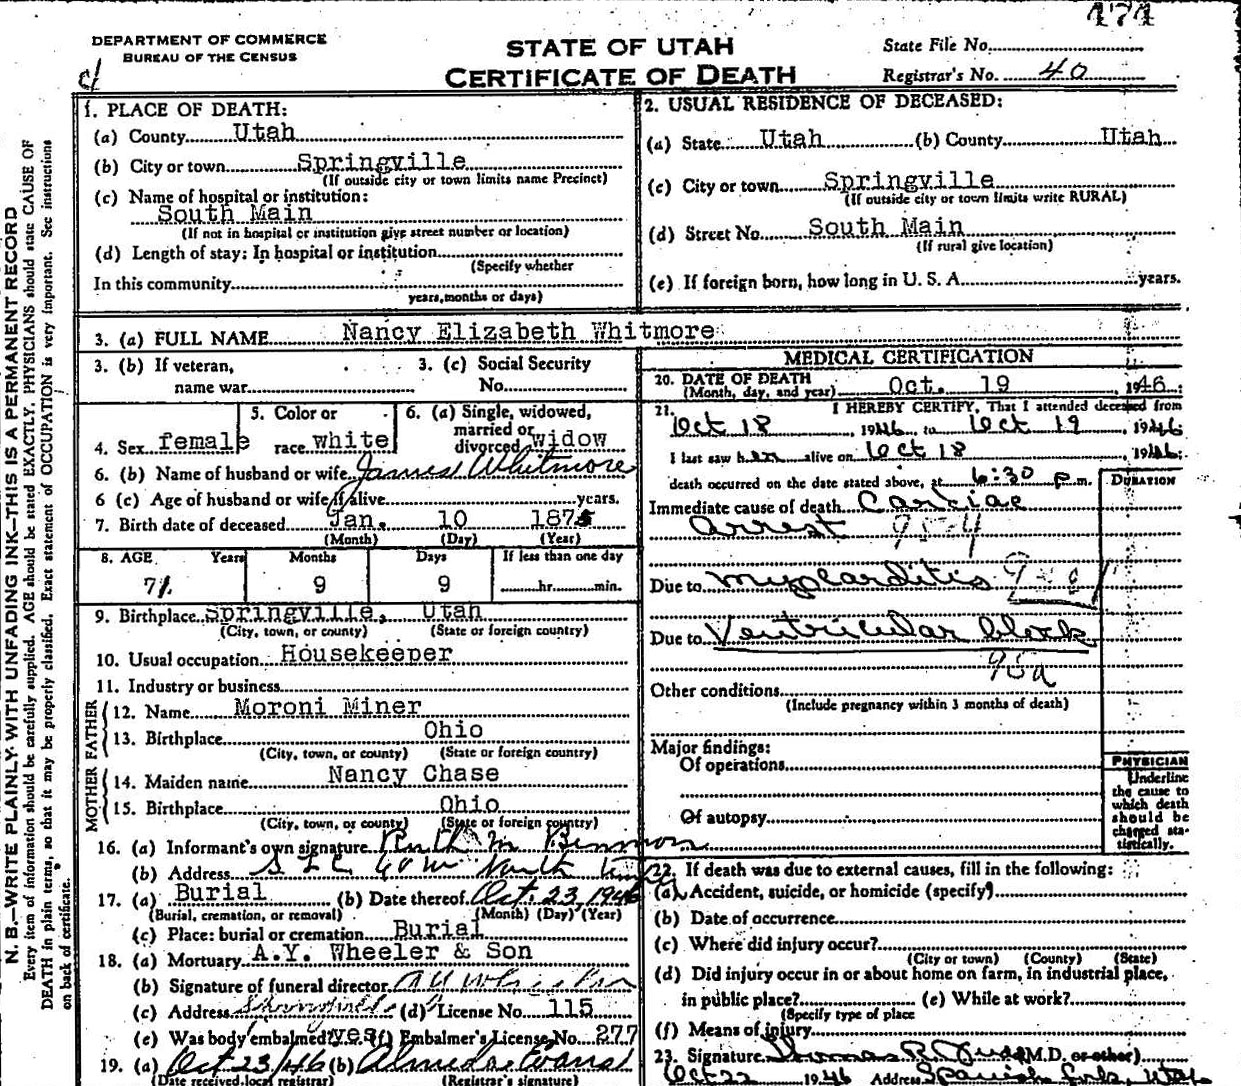 474
DEPARTMENT OF COMMERCE
BUREAU OF THE CENSUS
STATE OF UTAH
CERTIFICATE OF DEATH
State File No.
Registrar's No. 40
N. B.—WRITE PLAINLY WITH UNFADING INK—THIS IS A PERMANENT RECORD
Every item of information should be carefully supplied. AGE should be stated EXACTLY. PHYSICIANS should state CAUSE OF
DEATH in plain terms, so that it may be properly classified. Exact statement of OCCUPATION is very important. See instructions
on back of certificate.
1. PLACE OF DEATH:
(a) County Utah
(b) City or town Springville
(If outside city or town limits name Precinct)
(c) Name of hospital or institution:
South Main
(If not in hospital or institution give street number or location)
(d) Length of stay: In hospital or institution
(Specify whether
In this community
years, months or days)
2. USUAL RESIDENCE OF DECEASED:
(a) State Utah (b) County Utah
(c) City or town Springville
(If outside city or town limits write RURAL)
(d) Street No. South Main
(If rural give location)
(e) If foreign born, how long in U. S. A. years.
3. (a) FULL NAME Nancy Elizabeth Whitmore
3. (b) If veteran, 3. (c) Social Security
name war No.
4. Sex female 5. Color or race white 6. (a) Single, widowed, married or divorced widow
6. (b) Name of husband or wife James Whitmore
6 (c) Age of husband or wife if alive years.
7. Birth date of deceased Jan. 10 1875
(Month) (Day) (Year)
8. AGE Years Months Days If less than one day
71 9 9 hr. min.
9. Birthplace Springville, Utah
(City, town, or county) (State or foreign country)
10. Usual occupation Housekeeper
11. Industry or business
FATHER
12. Name Moroni Miner
13. Birthplace Ohio
(City, town, or county) (State or foreign country)
MOTHER
14. Maiden name Nancy Chase
15. Birthplace Ohio
(City, town, or county) (State or foreign country)
16. (a) Informant's own signature Ruth M
(b) Address S L C 40 W North
17. (a) Burial (b) Date thereof Oct. 23, 1946
(Burial, cremation, or removal) (Month) (Day) (Year)
(c) Place: burial or cremation Burial
18. (a) Mortuary A.Y. Wheeler & Son
(b) Signature of funeral director A Y Wheeler
(c) Address Springville (d) License No. 115
(e) Was body embalmed yes (f) Embalmer's License No. 277
19. (a) Oct 23/46 (b) Almeda Evans
(Date received local registrar) (Registrar's signature)
MEDICAL CERTIFICATION
20. DATE OF DEATH
(Month, day, and year) Oct. 19 1946
21. I HEREBY CERTIFY, That I attended deceased from
Oct 18, 1946 to Oct 19, 1946
I last saw her alive on Oct 18 1946
death occurred on the date stated above, at 6:30 p.m. DURATION
Immediate cause of death Cardiac
Arrest 95-4
Due to myocarditis
Due to Ventricular block
95a
Other conditions
(Include pregnancy within 3 months of death)
Major findings:
Of operations
Of autopsy
PHYSICIAN
Underline
the cause to
which death
should be
charged sta-
tistically.
22. If death was due to external causes, fill in the following:
(a) Accident, suicide, or homicide (specify)
(b) Date of occurrence
(c) Where did injury occur?
(City or town) (County) (State)
(d) Did injury occur in or about home on farm, in industrial place,
in public place? (e) While at work?
(Specify type of place
(f) Means of injury
23. Signature Thomas R. (M.D. or other)
Oct 22 1946 Address Spanish Fork, Utah